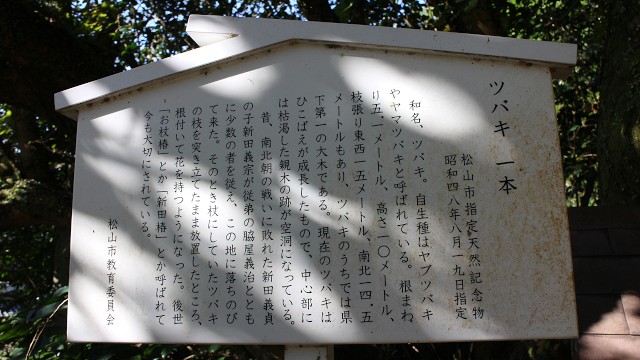 ツバキ 一本
松山市指定天然記念物
昭和四八年八月一九日指定
和名、ツバキ。自生種はヤブツバキ
やヤマツバキと呼ばれている。根まわ
り五、一メートル、高さ一〇メートル、
枝張り東西一五メートル、南北一四、五
メートルもあり、ツバキのうちでは県
下第一の大木である。現在のツバキは
ひこばえが成長したもので、中心部に
は枯渇した親木の跡が空洞になっている。
昔、南北朝の戦いに敗れた新田義貞
の子新田義宗が従弟の脇屋義治ととも
に少数の者を従え、この地に落ちのび
て来た。そのとき杖にしていたツバキ
の枝を突き立てたまま放置したところ、
根付いて花を持つようになった。後世
「お杖椿」とか「新田椿」とか呼ばれて
今も大切にされている。
松山市教育委員会